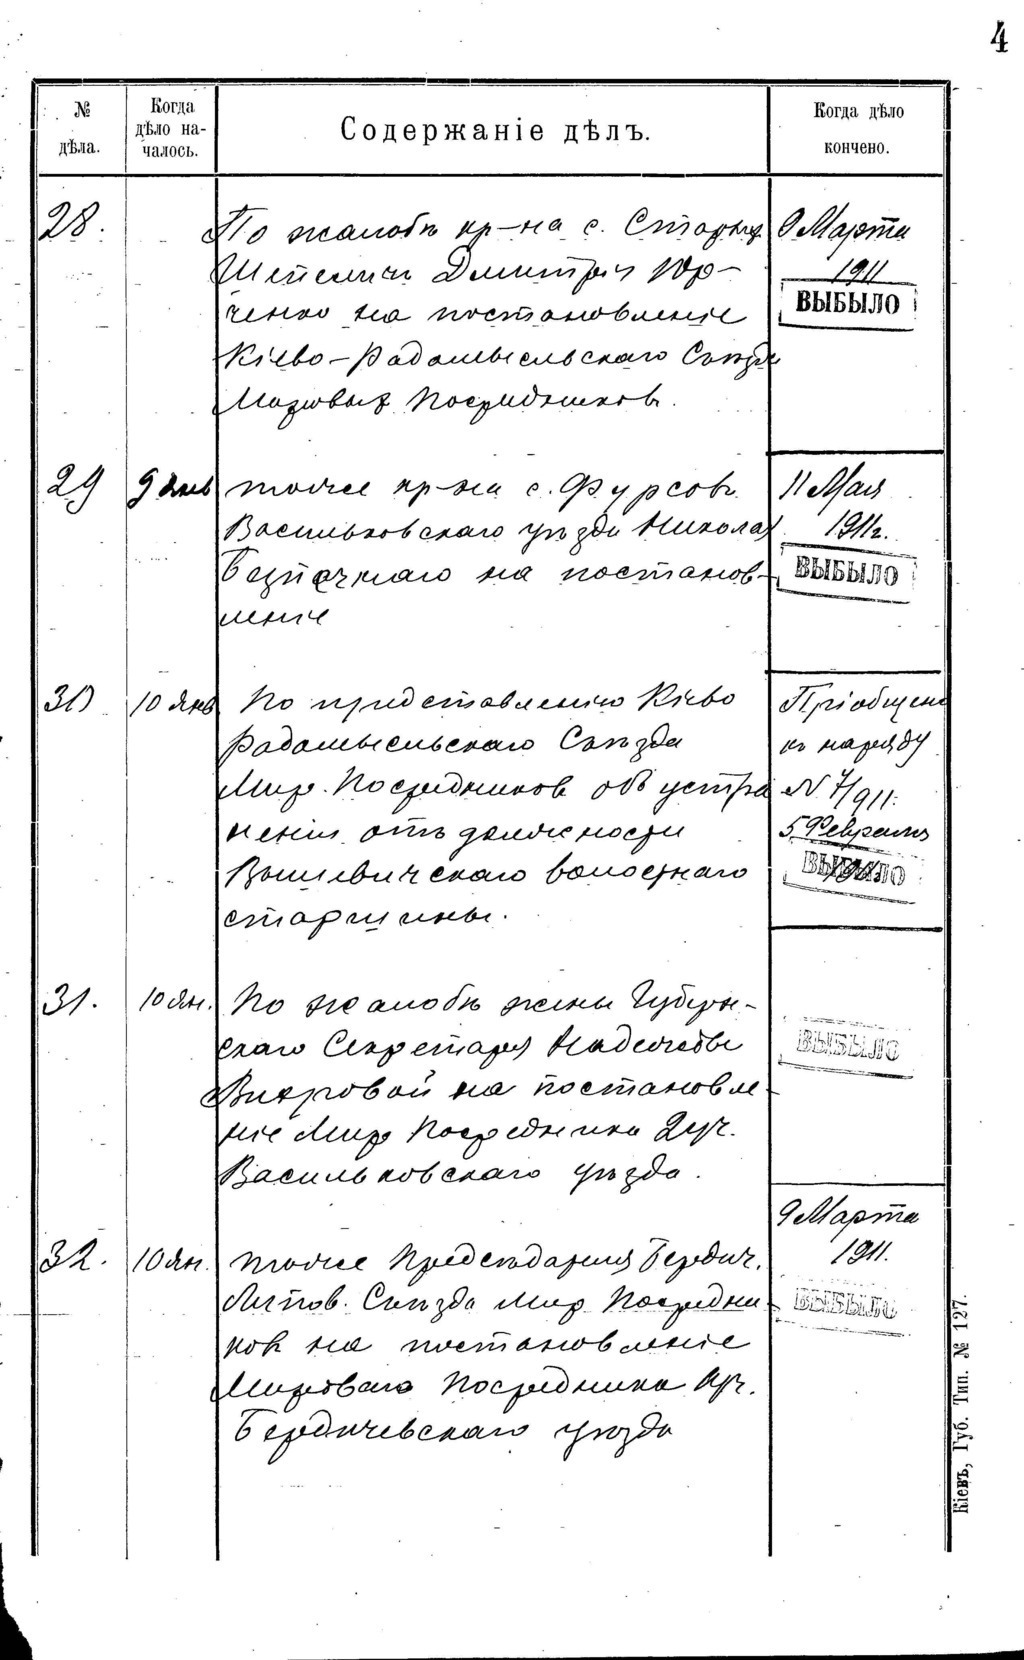 4
№ дѣла.
Когда дѣло на-
чалось.
Содержаніе дѣлъ.
Когда дѣло
кончено.
28. По жалобѣ кр-на с. Старых 9 Марта
Шепеличи Дмитрія Юр- 1911
ченко на постановленіе ВЫБЫЛО
Кіево-Радомысльскаго Съѣзда
Мировых Посредников.
29 9 Янв тоже кр-на с. Фурсов 11 Мая
Васильковскаго уѣзда Николая 1911г.
Безпечнаго на постанов- ВЫБЫЛО
леніе
30 10 Янв По представленію Кіево Пріобщено
Радомысльскаго Съѣзда къ наряду
Мир. Посредников об устра N 7/911.
неніи отъ должности 5 Февраля
волостнаго ВЫБЫЛО
старшины.
31. 10 Ян. По жалобѣ жены Губерн-
скаго Секретаря Надежды
Вихровой на постановле- ВЫБЫЛО
ніе Мир Посредника 2 уч.
Васильковскаго уѣзда.
9 Марта
32. 10 Ян. тоже Предсѣдателя Бердич. 1911.
Липов. Съѣзда Мир Посредни- ВЫБЫЛО
ков на постановленіе
Мироваго Посредника уч.
Бердичевскаго уѣзда
Кіевъ, Губ. Тип. № 127.